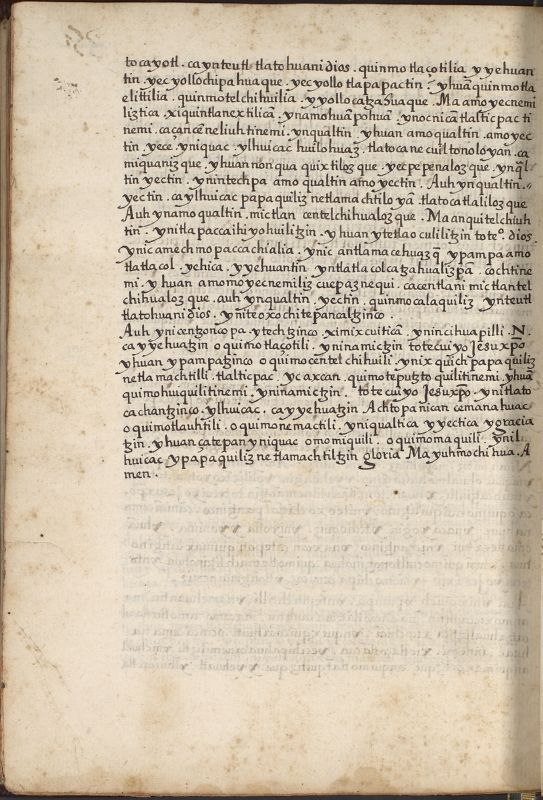 tocayotl . ca ynteutl tlatohuani dios . quinmotlaçotilia yyehuan
tin . yecyollochipahuaque . yecyollotlapapactin . yhuā quinmotla
elittilia . quinmotelchihuilia . yyollocatzahuaque . Ma amo yecnemi
liztica . xiquintlanextilicā . ynamohuāpohuā . ynocnicā tlalticpac ti
nemi . ca çan cēneliuhtinemi . ynqualtin . yhuan amo qualtin . amo yec
tin . yece . yniquac . ylhuicac huilohuaz . tlatocanecuiltonoloyan . ca
miquanizque . yhuan nonqua quixtilozque . yecpepenalozque . ynql
tin yectin . ynintechpa amo qualtin amo yectin . Auh ynqualtin .
yectin . ca ylhuicac papaquiliz netlamachtiloyā . tlatocatlalilozque
Auh ynamo qualtin . mictlan centelchihualozque . Ma anquitelchiuh
tin . ynitlapaccaihiyohuilitzin . yhuan ytetlaoculilitzin toteº. dios .
ynic amechmopaccachialia . ynic antlamacehuazq̄ . ypampa amo
tlatlacol . yehica . yyehuantin yntlatlacolcatzahualizpā . cochtine
mi . yhuan amo moyecnemiliz cuepaznequi . cacentlani mictlan tel
chihualozque . auh ynqualtin . yectin . quinmocalaquiliz . ynteutl
tlatohuani dios . yniteoxochitepancaltzinco .
Auh yni centzonco pa . ytechtzinco ximixcuiticā . ynincihuapilli . N.
ca yyehuatzin oquimotlaçotili . yninamictzin . totecuiyo Jesuxpo
yhuan ypampatzinco oquimocentelchihuili . ynixquich papaquiliz
netlamachtilli . tlalticpac . yc axcan . quimoteputztoquilitinemi . yhuā
quimohuiquilitinemi . yninamictzin . totecuiyo Jesuxpo . ynitlato
cachantzinco . ylhuicac . ca yyehuatzin Achtopa nican cemanahuac
oquimotlauhtili . oquimonemactili . yniqualtica yyectica ygracia
tzin . yhuan çatepan yniquac omomiquili . oquimomaquili . ynil
huicac ypapaquiliz netlamachtiltzin gloria Ma yuh mochihua . A
men .